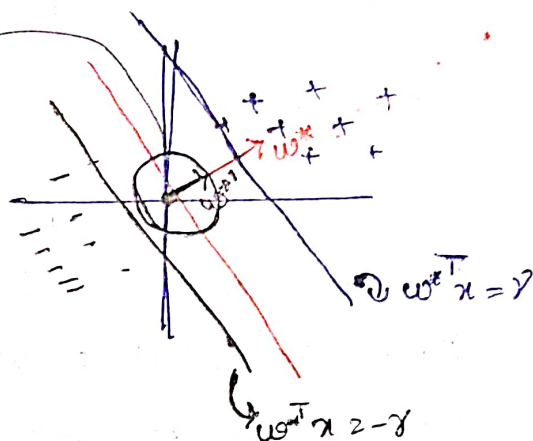 w*
w*ᵀx = γ
w*ᵀx = -γ